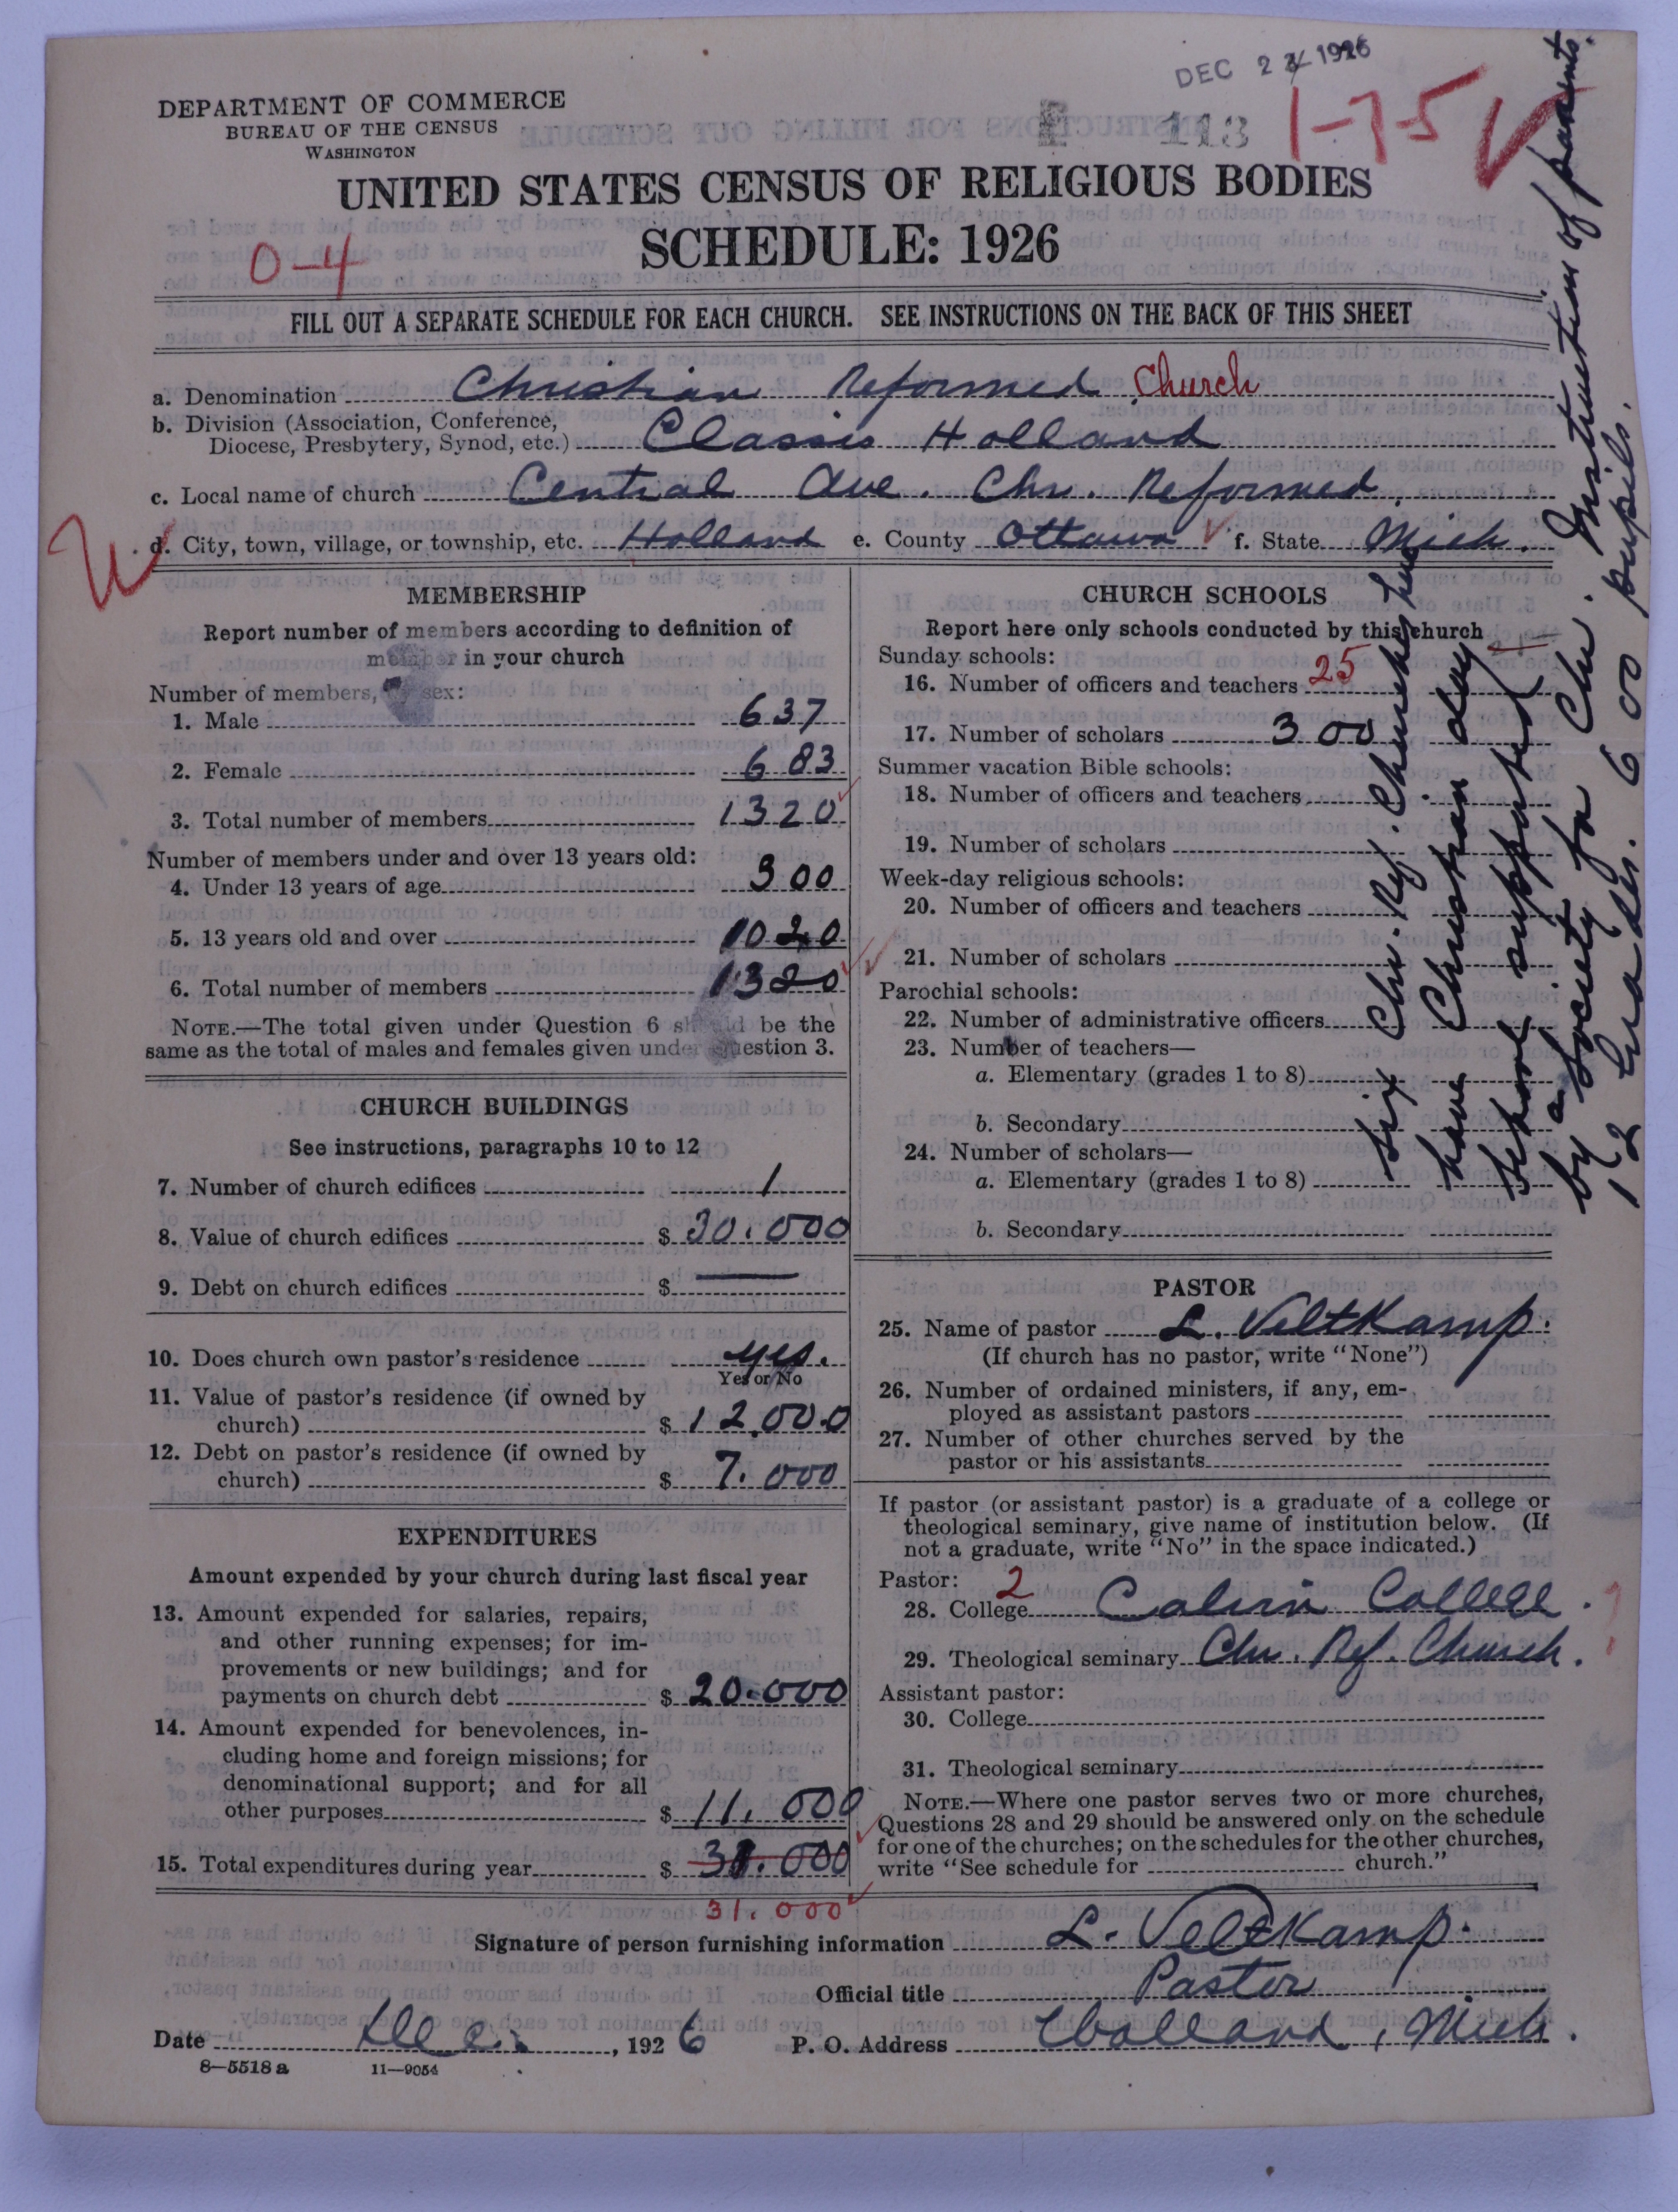 DEC 22 1926
DEPARTMENT OF COMMERCE
BUREAU OF THE CENSUS
WASHINGTON
113
1-75
UNITED STATES CENSUS OF RELIGIOUS BODIES
SCHEDULE: 1926
0-4
FILL OUT A SEPARATE SCHEDULE FOR EACH CHURCH. SEE INSTRUCTIONS ON THE BACK OF THIS SHEET
a. Denomination Christian Reformed Church
b. Division (Association, Conference,
Diocese, Presbytery, Synod, etc.) Classis Holland
c. Local name of church Central Ave. Chr. Reformed.
d. City, town, village, or township, etc. Holland e. County Ottawa f. State Mich.
MEMBERSHIP
Report number of members according to definition of
member in your church
Number of members, by sex:
1. Male 637
2. Female 683
3. Total number of members 1320
Number of members under and over 13 years old:
4. Under 13 years of age 300
5. 13 years old and over 1020
6. Total number of members 1320
NOTE.—The total given under Question 6 should be the
same as the total of males and females given under Question 3.
CHURCH BUILDINGS
See instructions, paragraphs 10 to 12
7. Number of church edifices 1
8. Value of church edifices $ 30.000
9. Debt on church edifices $ —
10. Does church own pastor's residence yes.
Yes or No
11. Value of pastor's residence (if owned by
church) $ 12.000
12. Debt on pastor's residence (if owned by
church) $ 7.000
EXPENDITURES
Amount expended by your church during last fiscal year
13. Amount expended for salaries, repairs,
and other running expenses; for im-
provements or new buildings; and for
payments on church debt $ 20.000
14. Amount expended for benevolences, in-
cluding home and foreign missions; for
denominational support; and for all
other purposes $ 11.000
15. Total expenditures during year $ 31.000
31.000
CHURCH SCHOOLS
Report here only schools conducted by this church
Sunday schools:
16. Number of officers and teachers 25
17. Number of scholars 300
Summer vacation Bible schools:
18. Number of officers and teachers
19. Number of scholars
Week-day religious schools:
20. Number of officers and teachers
21. Number of scholars
Parochial schools:
22. Number of administrative officers
23. Number of teachers—
a. Elementary (grades 1 to 8)
b. Secondary
24. Number of scholars—
a. Elementary (grades 1 to 8)
b. Secondary
Six Chr. Ref. Churches here
have Christian day
school supported
by a society for Chr. Instruction of parents.
12 Grades. 600 pupils.
PASTOR
25. Name of pastor L. Veltkamp.
(If church has no pastor, write "None")
26. Number of ordained ministers, if any, em-
ployed as assistant pastors
27. Number of other churches served by the
pastor or his assistants
If pastor (or assistant pastor) is a graduate of a college or
theological seminary, give name of institution below. (If
not a graduate, write "No" in the space indicated.)
Pastor: 2
28. College Calvin College.
29. Theological seminary Chr. Ref. Church.
Assistant pastor:
30. College
31. Theological seminary
NOTE.—Where one pastor serves two or more churches,
Questions 28 and 29 should be answered only on the schedule
for one of the churches; on the schedules for the other churches,
write "See schedule for church."
Signature of person furnishing information L. Veltkamp.
Official title Pastor
Date Dec., 1926 P. O. Address Holland, Mich.
8—5518a 11—9054